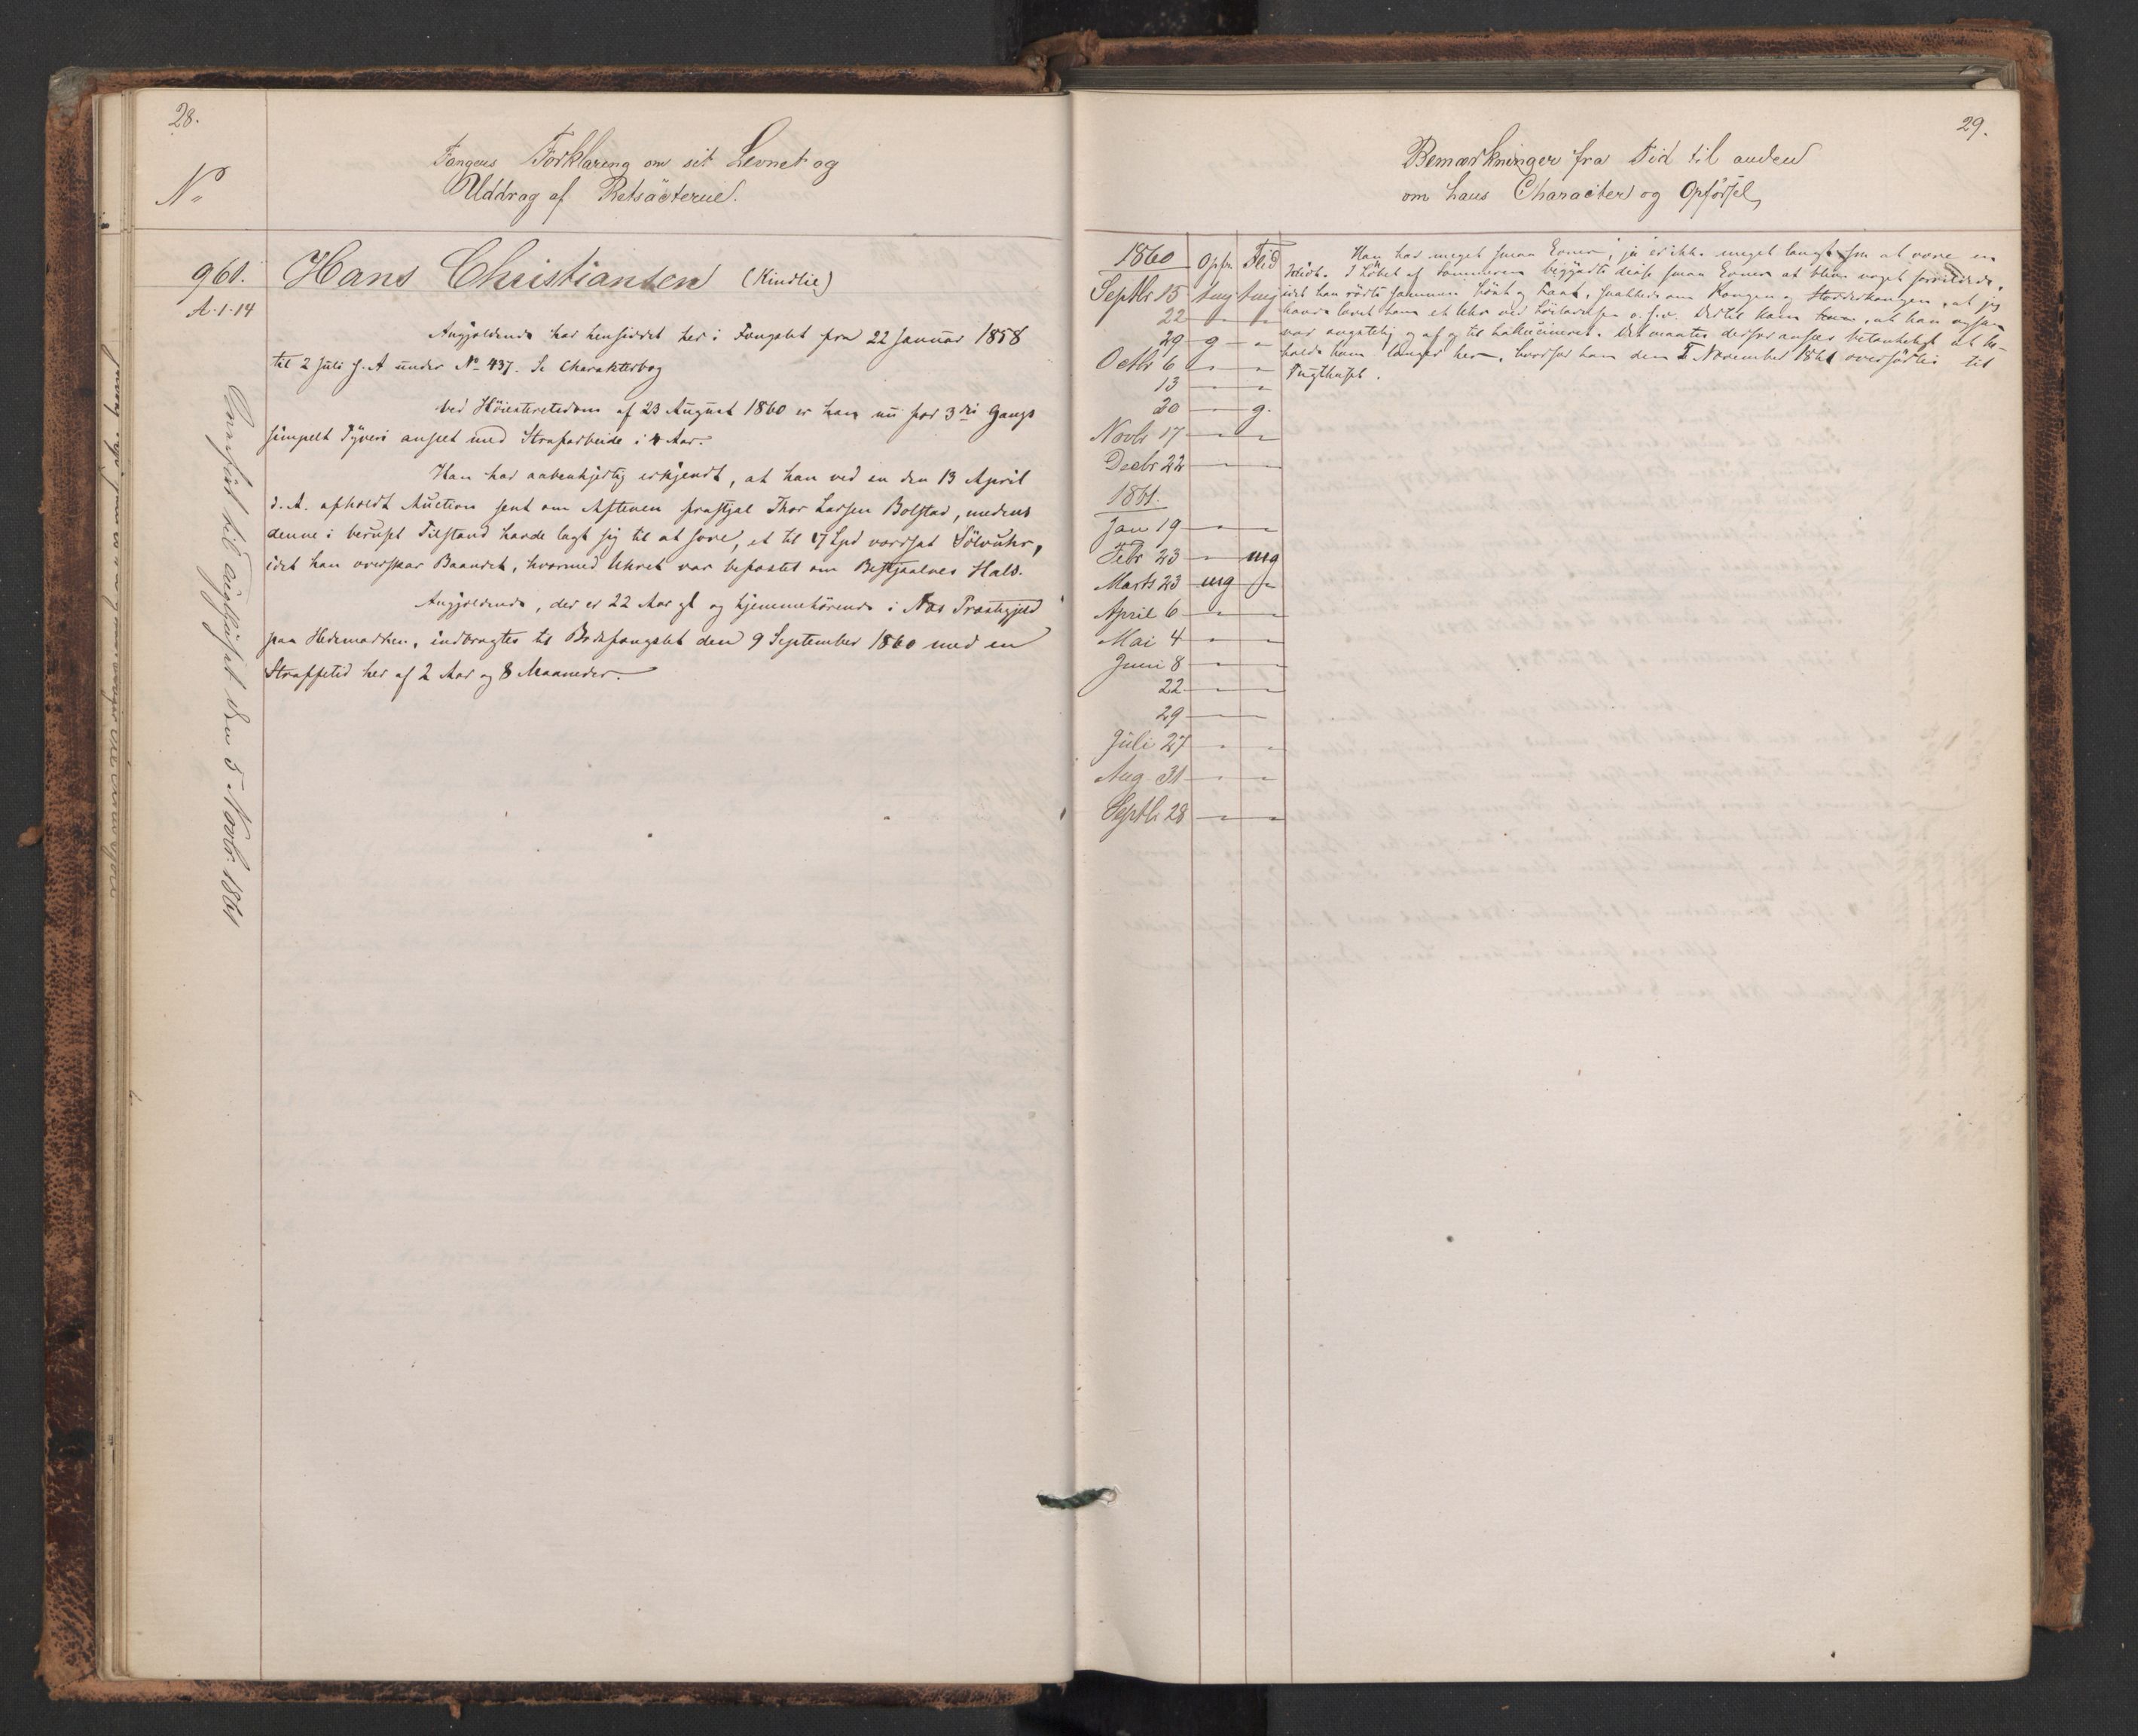 28.
No
Fangens Forklaring om sit Levnet og
Uddrag af Retsacterne.
961.
A.1.14
Hans Christiansen (Kindlie)
Angjældende har hensiddet her i Fængslet fra 22 Januar 1858
til 2 Juli s. A under No 437. Se Charakterbog
Ved Höiesteretsdom af 23 August 1860 er han nu for 3die Gangs
simpelt Tyveri anseet med Strafarbeide i 4 Aar.
Han har aabenhjertig erkjendt, at han ved en den 13 April
d. A. afholdt Auction sent om Aftenen frastjal Thor Larsen Bolstad, medens
denne i beruset Tilstand havde lagt sig til at sove, et til 17 Spd værdsat Sölvuhr,
idet han overskar Baandet, hvormed Uhret var befæstet om Bestjaalnes Hals.
Angjældende, der er 22 Aar gl og hjemmehörende i Næs Præstegjeld
paa Hedemarken, indbragtes til Bodsfængslet den 9 September 1860 med en
Straffetid her af 2 Aar og 8 Maaneder.
Overfört til Tugthuset den 5 Novbr. 1861
29.
Bemærkninger fra Tid til anden
om hans Character og Opförsel,
1860 Opfn. Flid
Septbr 15 tmg tmg
22 " "
29 g "
Octbr 6 " "
13 " "
20 " g.
Novbr 17 " "
Decbr 22 " "
1861.
Jan 19 " "
Febr 23 " mg
Marts 23 mg "
April 6 " "
Mai 4 " "
Juni 8 " "
22 " "
29 " "
Juli 27 " "
Aug 31 " "
Septb. 28 " "
Han har meget smaa Evner, ja er ikke meget langt fra at være en
Idiot. I Löbet af Sommeren begyndte disse smaa Evner at blive noget forvildede,
idet han rörte sammen Löst og Fast, snakkede om Kongen og Storderkongen, at jeg
havde lovet ham et Uhr ved Lösladelsen o.s.v. Dertil kom, at han ogsaa
var ængstelig og af og til hallucineret. Det maatte derfor ansees betænkeligt at be-
holde ham længer her, hvorfor han den 5 November 1861 overförtes til
Tugthuset.